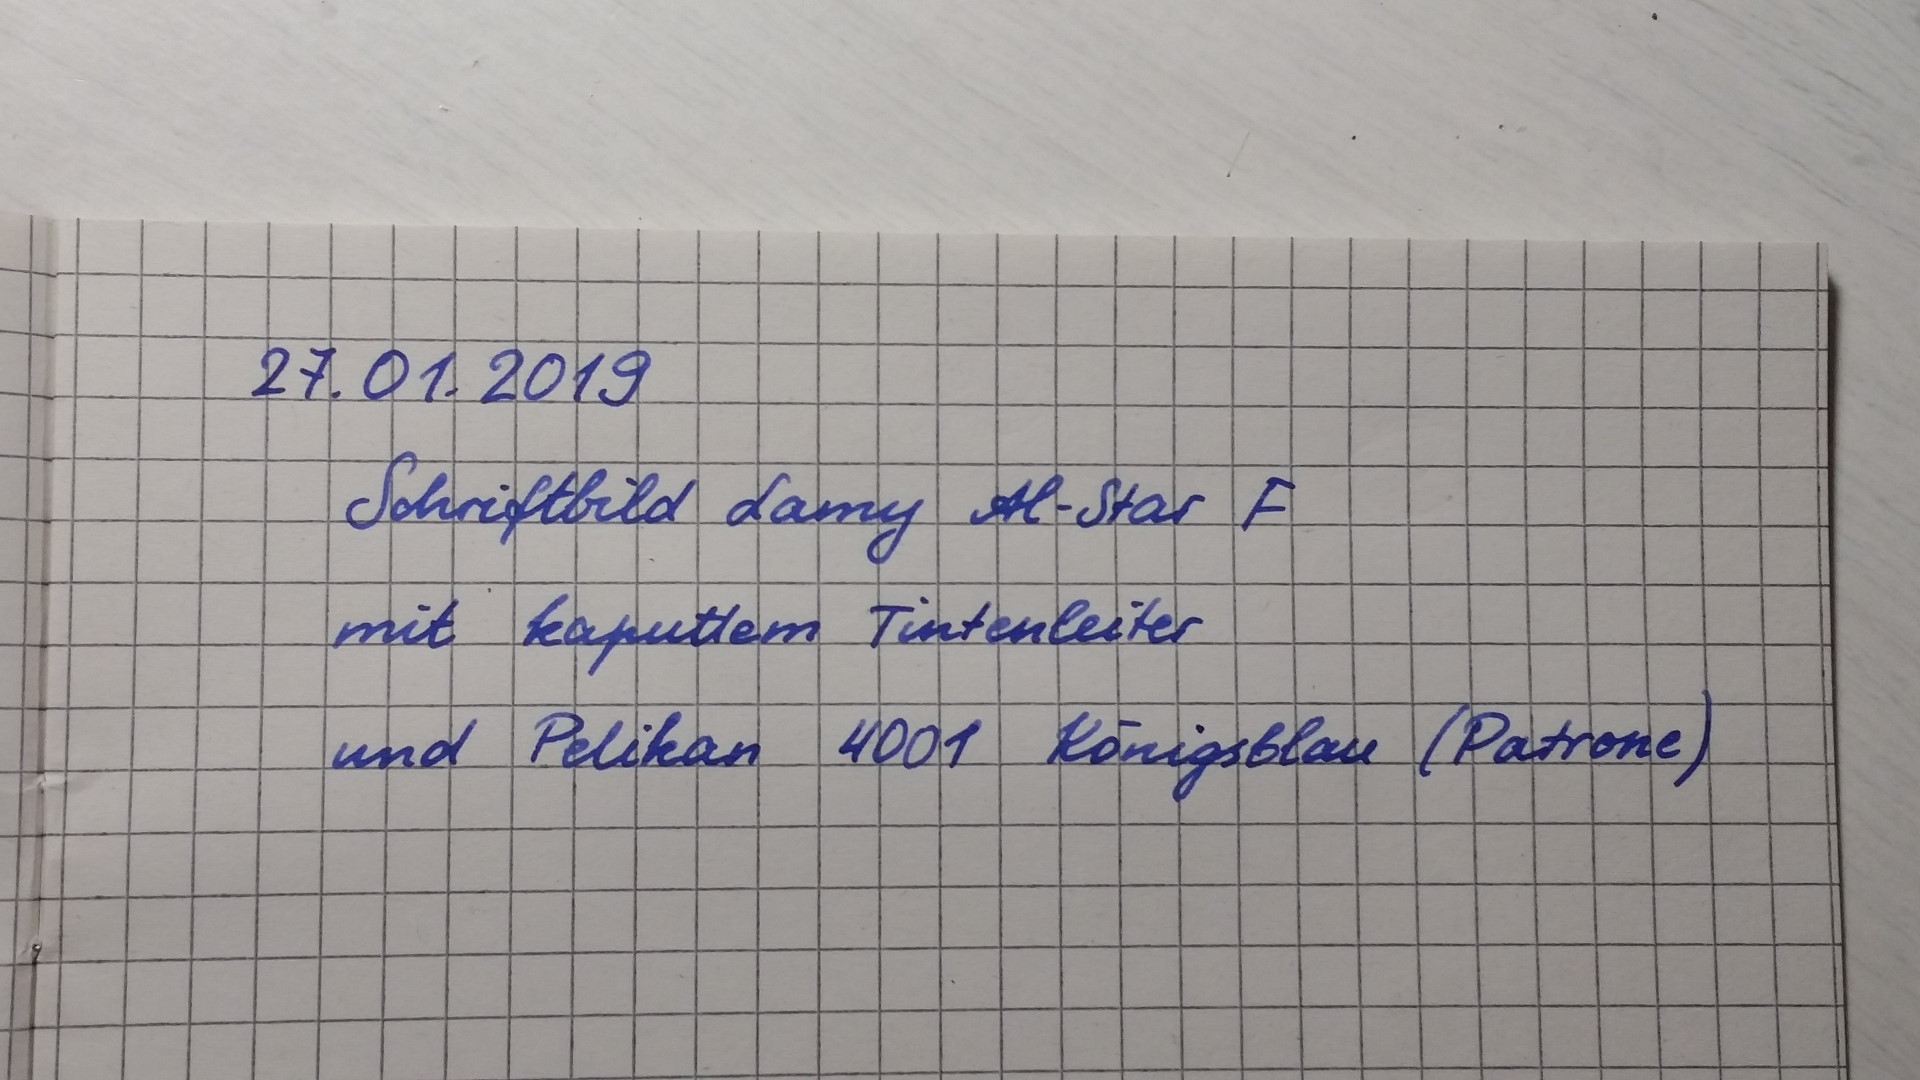 27.01.2019
Schriftbild Lamy Al-Star F
mit kaputtem Tintenleiter
und Pelikan 4001 Königsblau (Patrone)